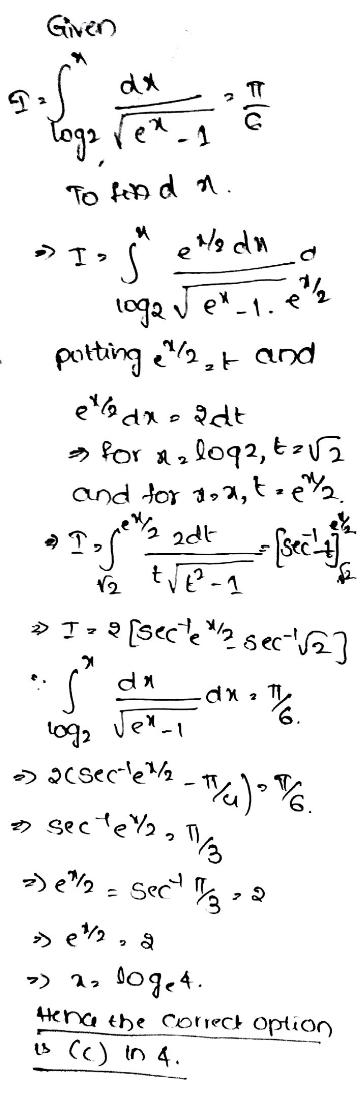 Given
I = ∫_{log2}^{x} dx / √(e^x - 1) = π/6
To find x.
⇒ I = ∫_{log2}^{x} e^{x/2} dx / √(e^x - 1) . e^{x/2}
putting e^{x/2} = t and
e^{x/2} dx = 2dt
⇒ for x = log2, t = √2
and for x = x, t = e^{x/2}.
⇒ I = ∫_{√2}^{e^{x/2}} 2dt / t√(t² - 1) = [sec⁻¹t]_{√2}^{e^{x/2}}
⇒ I = 2[sec⁻¹e^{x/2} - sec⁻¹√2]
∵ ∫_{log2}^{x} dx / √(e^x - 1) dx = π/6.
⇒ 2(sec⁻¹e^{x/2} - π/4) = π/6.
⇒ sec⁻¹e^{x/2} = π/3
⇒ e^{x/2} = sec⁻¹ π/3 = 2
⇒ e^{x/2} = 2
⇒ x = log_e 4.
Hence the correct option
is (c) ln 4.